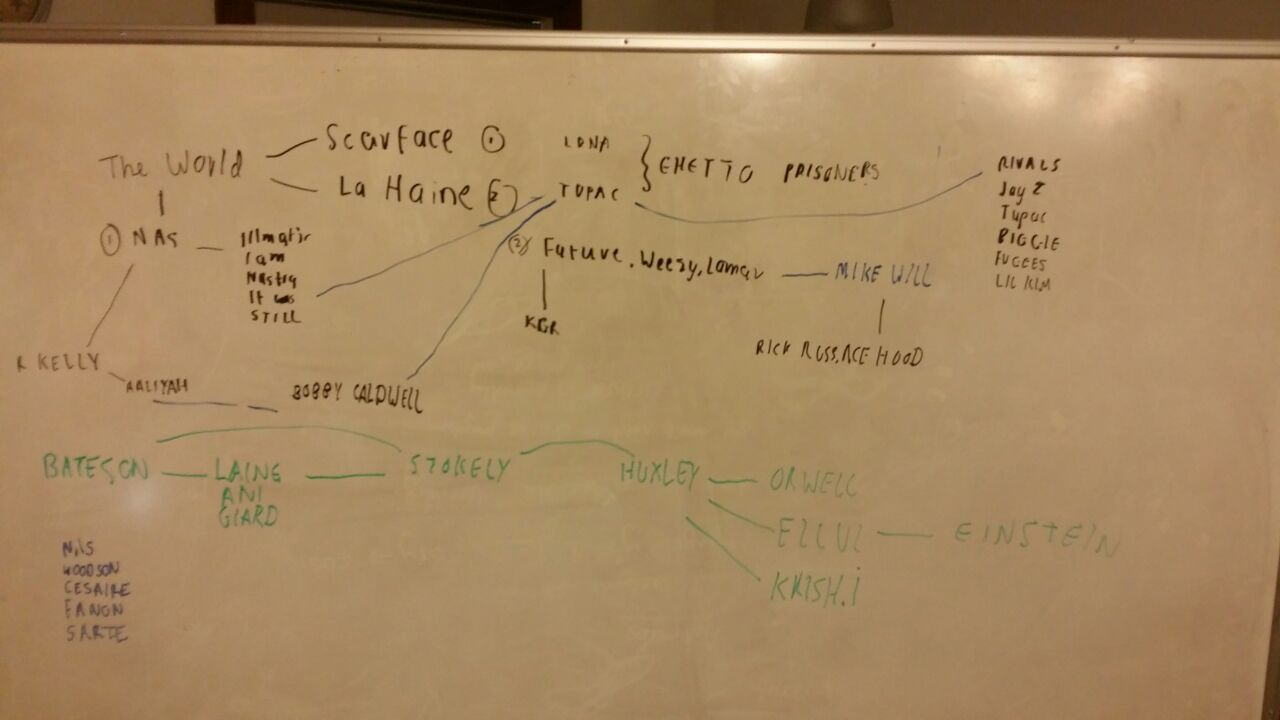 The World
Scarface ①
La Haine ②
LONA
TUPAC
GHETTO PRISONERS
RIVALS
Jay Z
Tupac
BIGGIE
FUGEES
LIL KIM
① NAS
Illmatic
I am
NAStra
It was
STILL
(2) Future, Weezy, Lamar
MIKE WILL
KGR
RICK ROSS, ACE HOOD
R KELLY
AALIYAH
BOBBY CALDWELL
BATESON
LAING
ANI
GIARD
STOKELY
HUXLEY
ORWELL
ELLUL
EINSTEIN
KRISH.i
Nils
WOODSON
CESAIRE
FANON
SARTE